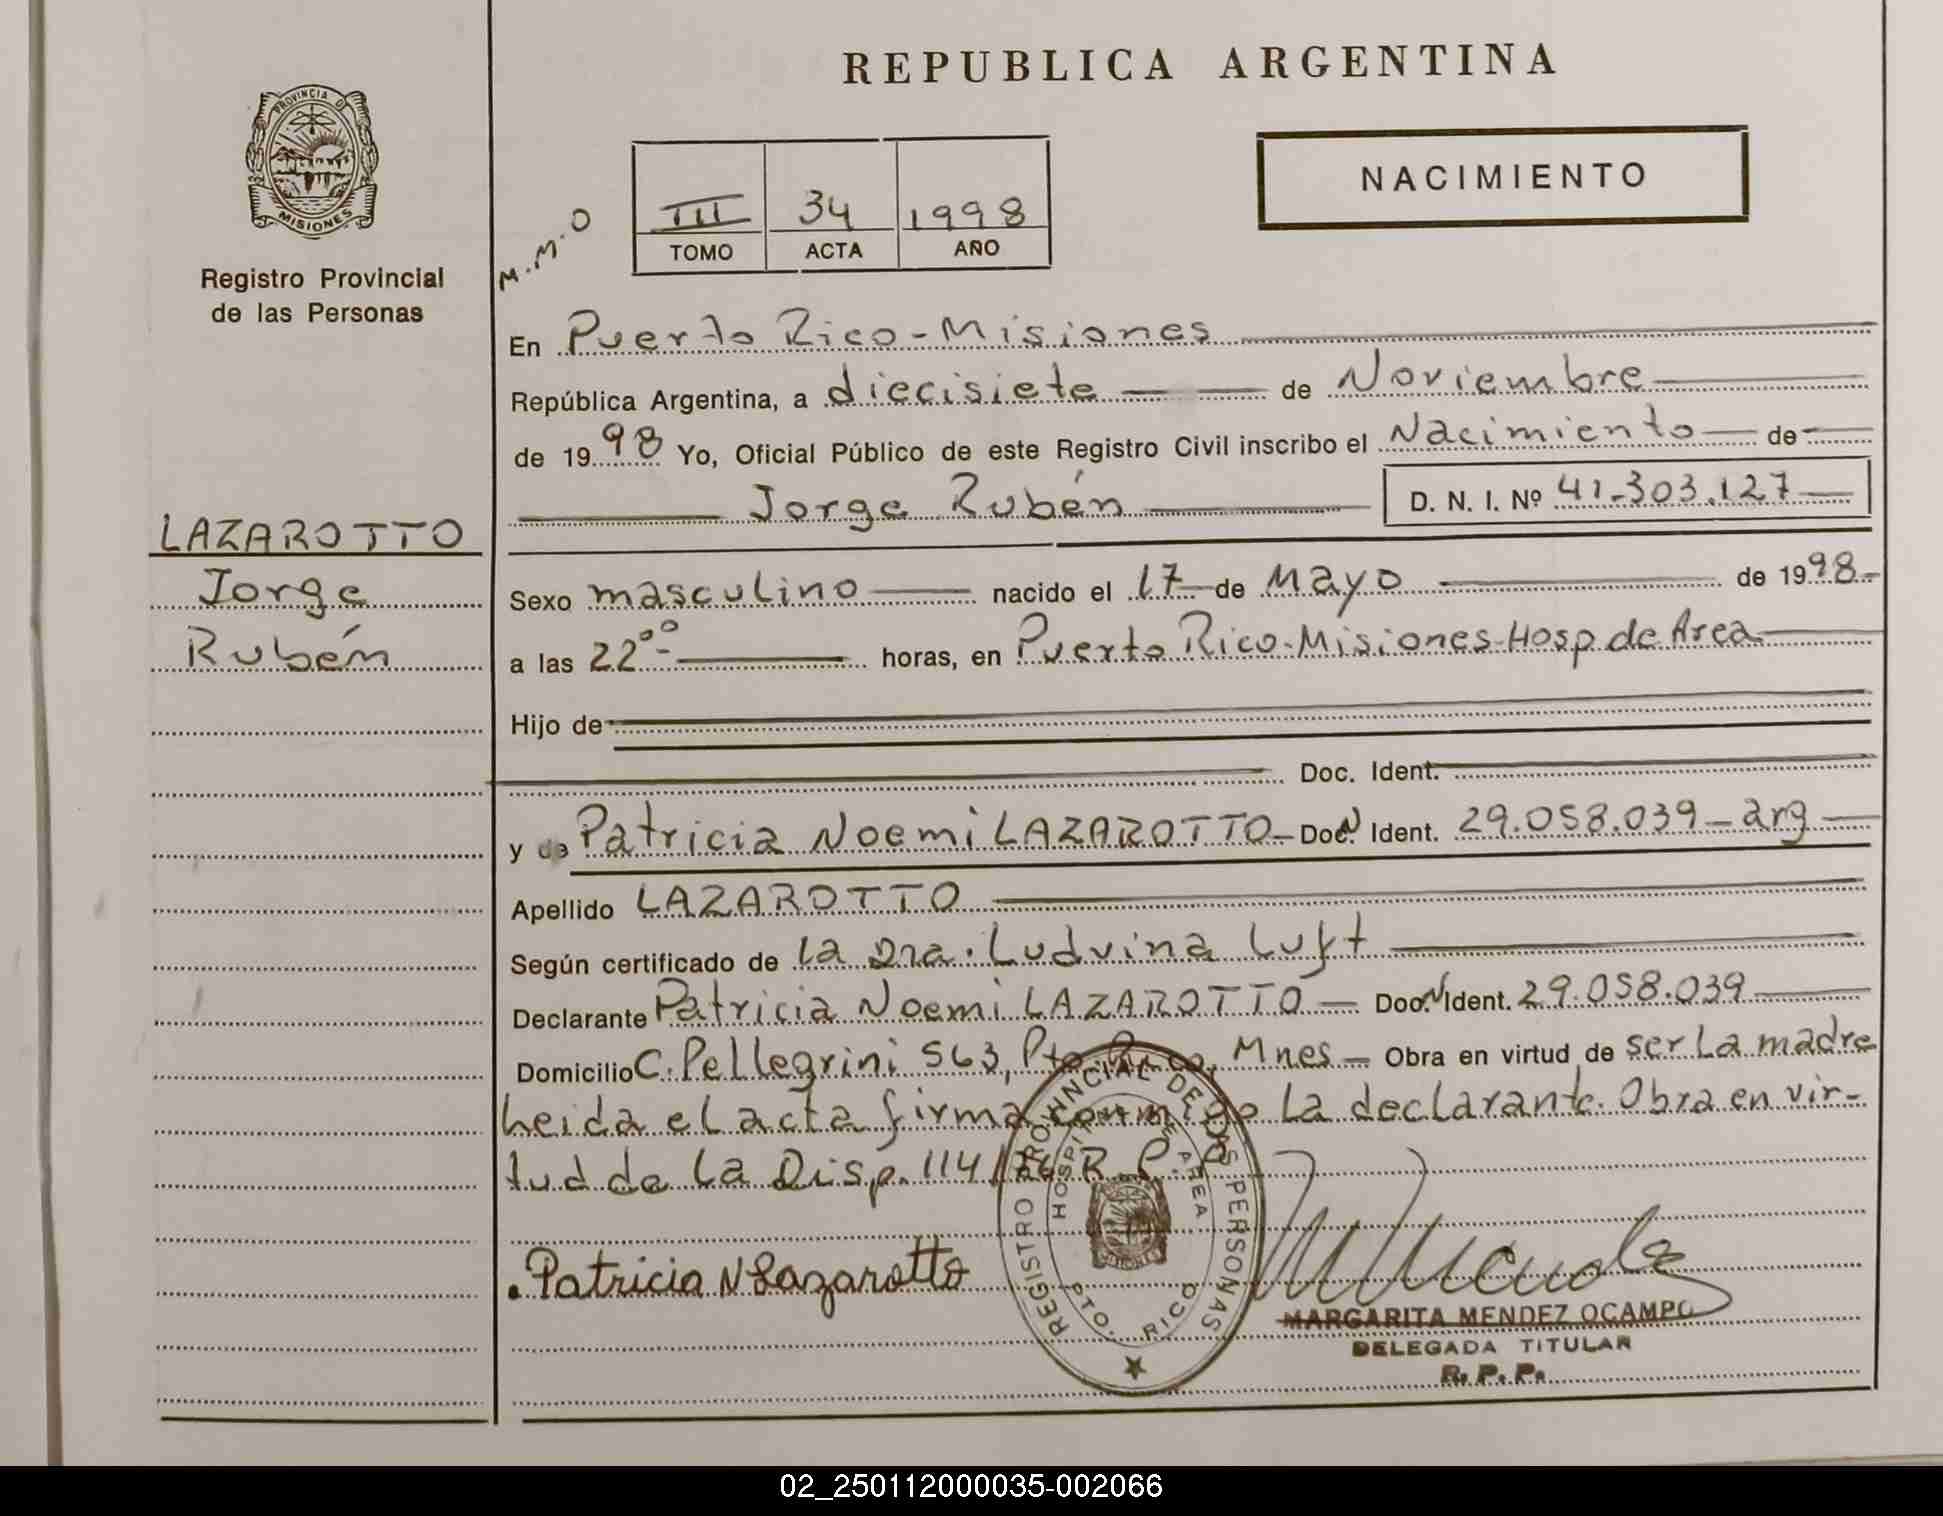 REPUBLICA ARGENTINA
PROVINCIA D
MISIONES
Registro Provincial
de las Personas
NACIMIENTO
M.M.O
III 34 1998
TOMO ACTA AÑO
En Puerto Rico-Misiones
República Argentina, a diecisiete de Noviembre
de 1998 Yo, Oficial Público de este Registro Civil inscribo el Nacimiento de
Jorge Rubén D. N. I. Nº 41.303.127
LAZAROTTO
Jorge
Rubén
Sexo masculino nacido el 17 de Mayo de 1998
a las 22°° horas, en Puerto Rico-Misiones-Hosp de Area
Hijo de
Doc. Ident.
y de Patricia Noemi LAZAROTTO Doc. N Ident. 29.058.039-arg
Apellido LAZAROTTO
Según certificado de la Dra. Ludvina Luft
Declarante Patricia Noemi LAZAROTTO Doc. N Ident. 29.058.039
Domicilio C. Pellegrini 563, Pto Rico, Mnes Obra en virtud de ser La madre
heida el acta firma conmigo La declarante. Obra en vir-
tud de la Disp. 114/ R. P. P.
Patricia N Lazarotto
REGISTRO PROVINCIAL DE LAS PERSONAS
HOSPITAL DE AREA
PTO. RICO
MARGARITA MENDEZ OCAMPO
DELEGADA TITULAR
R. P. P.
02_250112000035-002066